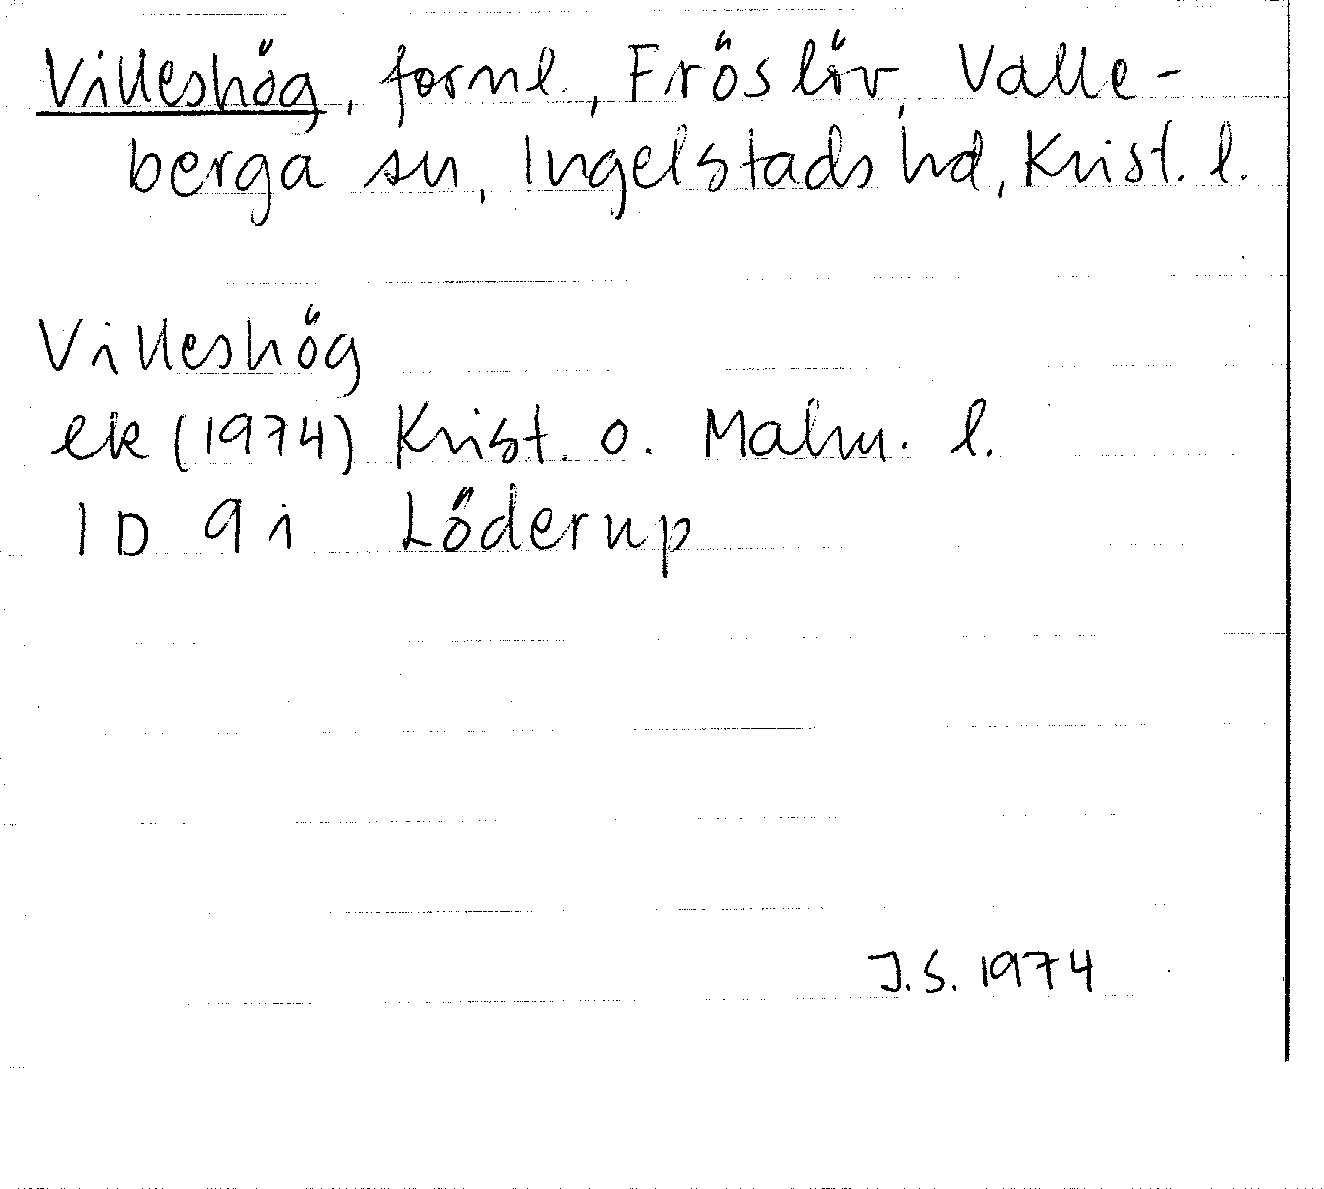 Villeshög, fornl., Fröslöv, Valle-
berga sn, Ingelstads hd, Krist. l.
Villeshög
ek (1974) Krist. o. Malm. l.
1D 9i Löderup
J.S. 1974